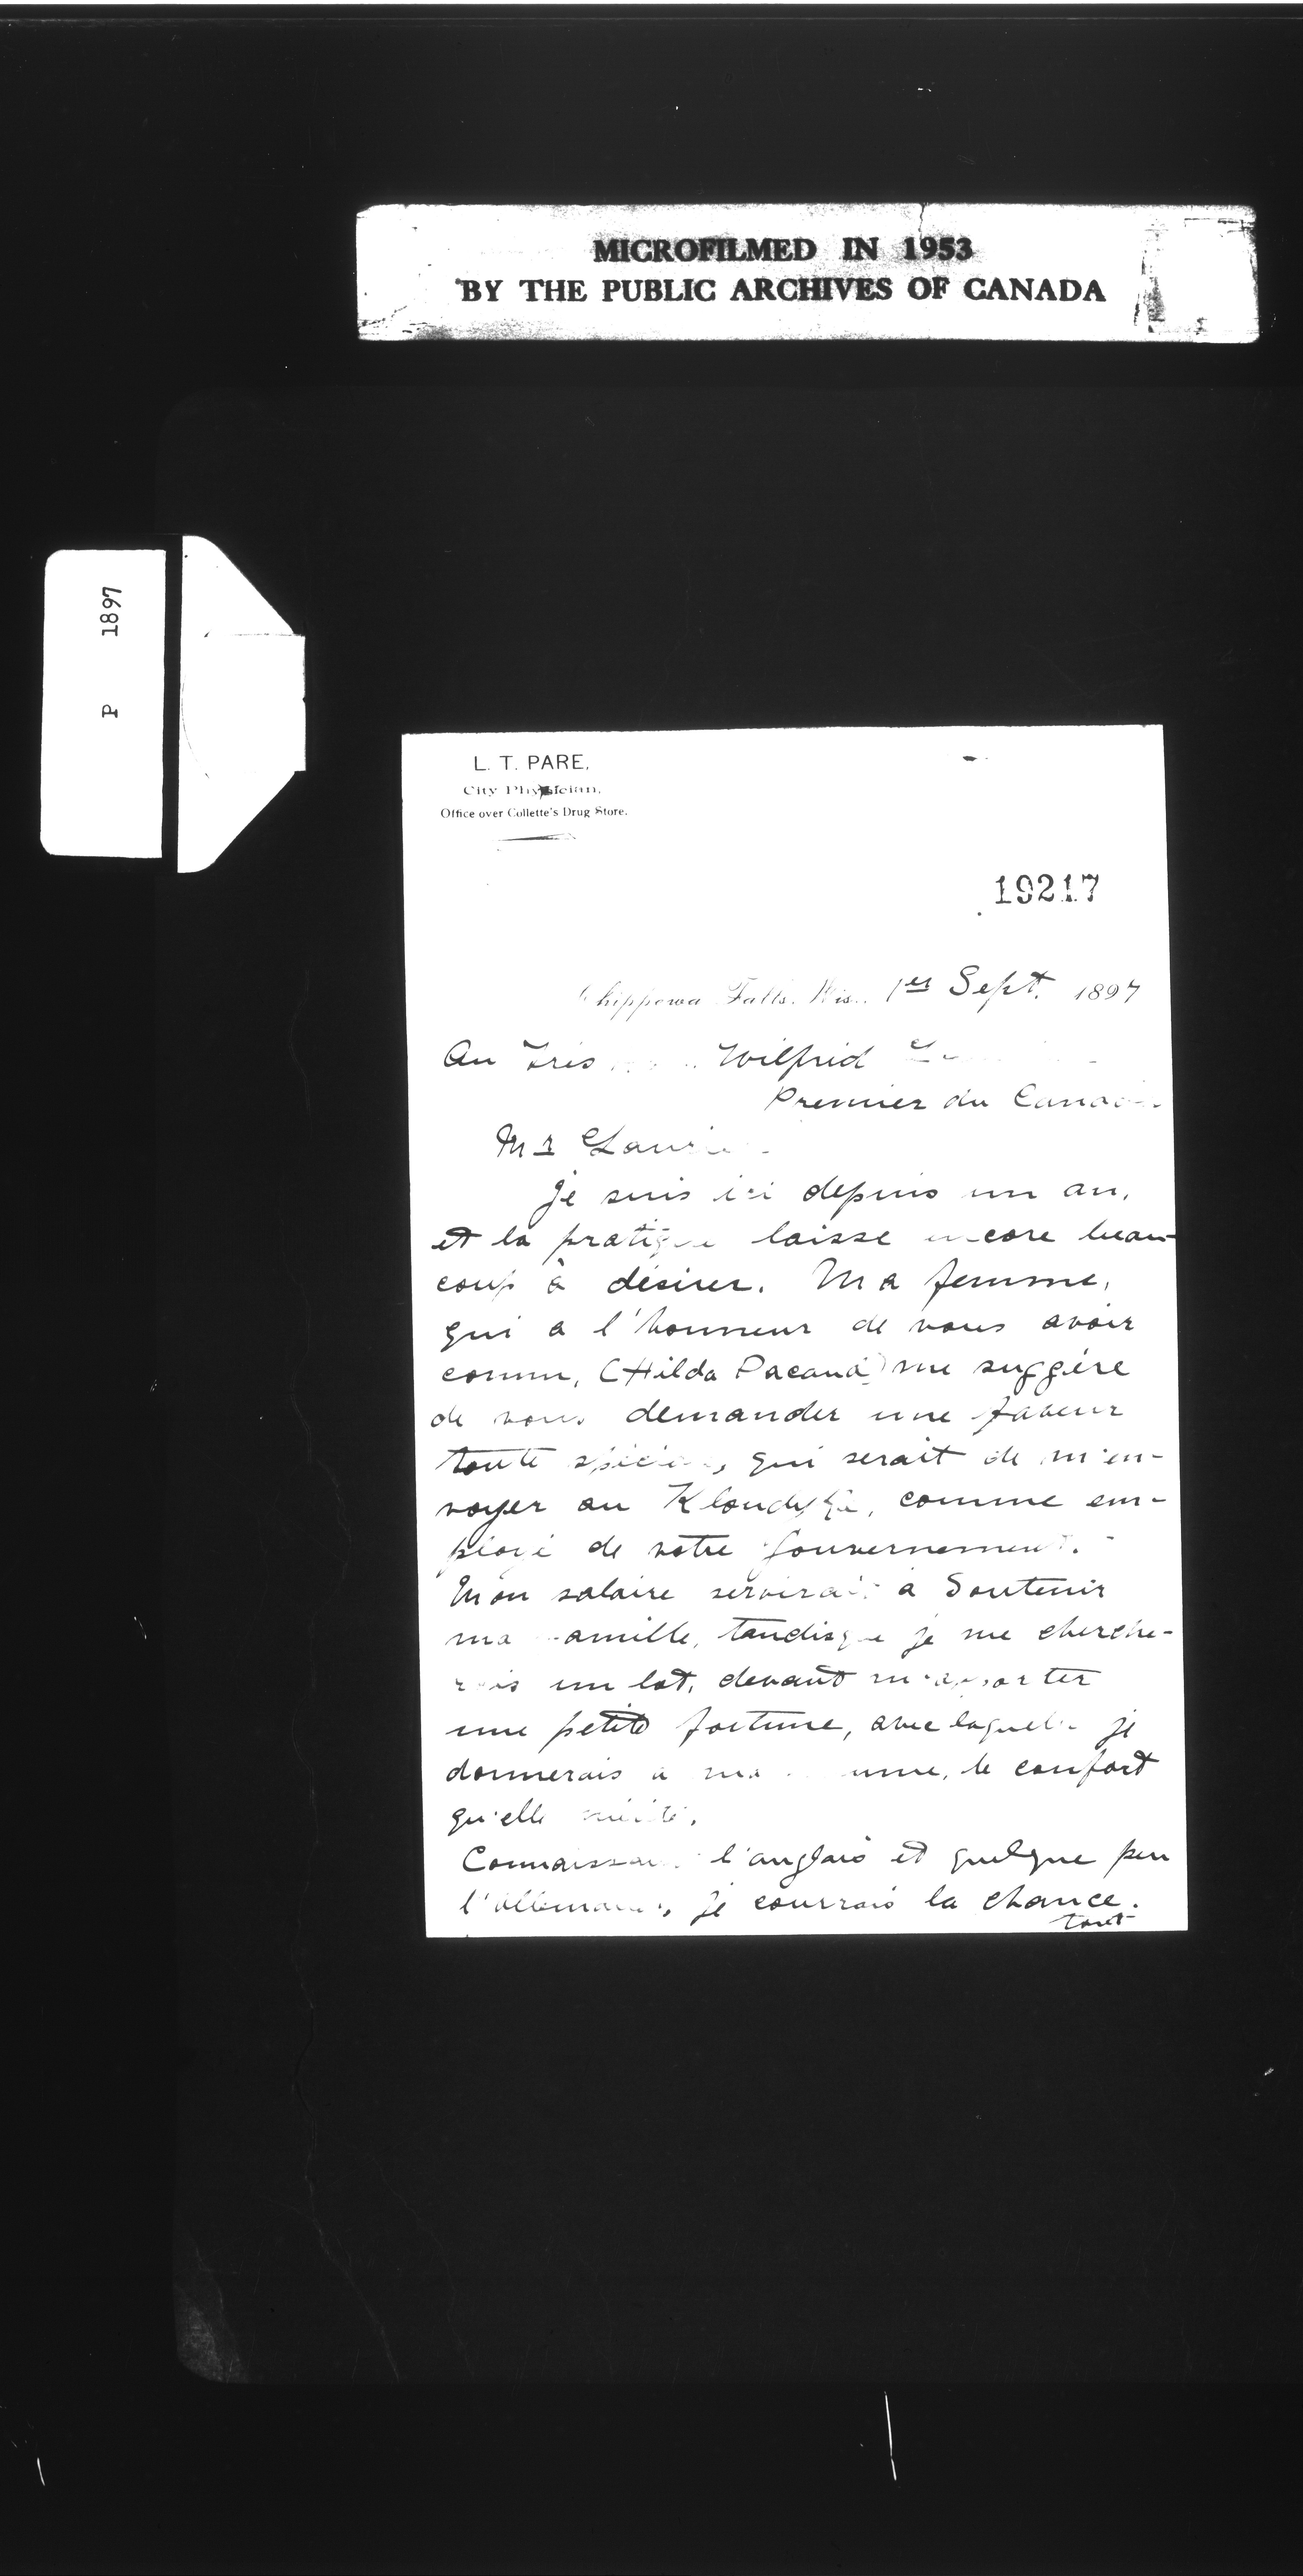 MICROFILMED IN 1953
BY THE PUBLIC ARCHIVES OF CANADA
P 1897
L. T. PARE,
City Physician,
Office over Collette's Drug Store.
19217
Chippewa Falls, Wis., 1er Sept. 1897
Au Très Wilfrid
Premier du Canada
Mr Laurier
Je suis ici depuis un an,
et la pratique laisse encore beau-
coup à désirer. Ma femme,
qui a l'honneur de vous avoir
connu, (Hilda Pacaud) me suggère
de vous demander une faveur
toute spéciale, qui serait de m'en-
voyer au Klondyke, comme em-
ployé de votre Gouvernement.
Mon salaire servirait à Soutenir
ma famille, tandisque je me cherche-
rais un lot, devant m'apporter
une petite fortune, avec laquelle je
donnerais à ma femme, le confort
qu'elle mérite.
Connaissant l'anglais et quelque peu
l'allemand, je courrais la chance.
tout